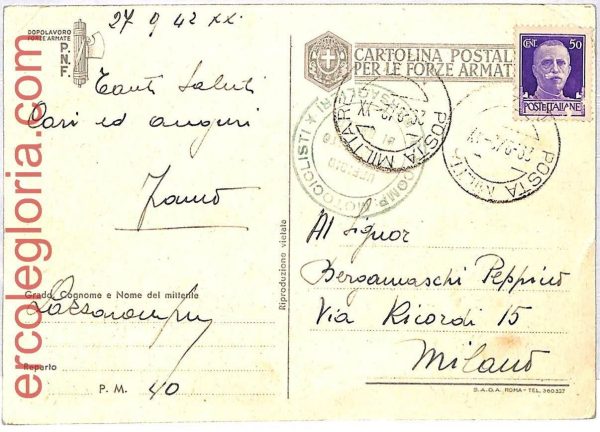 27 9 42 XX.
DOPOLAVORO
FORZE ARMATE
P.
N.F.
Tanti Saluti
Cari ed auguri
Grado, Cognome e Nome del mittente
Reparto
P. M. 40
Riproduzione vietata
CARTOLINA POSTALE
PER LE FORZE ARMATE
CENT. 50
POSTE ITALIANE
POSTA MILITARE
POSTA MILITARE
COMP. MOTOCICLISTI
Al Signor
Bergamaschi Peppino
Via Ricordi 15
Milano
S.A.D.A. ROMA - TEL. 360327
ercolegloria.com